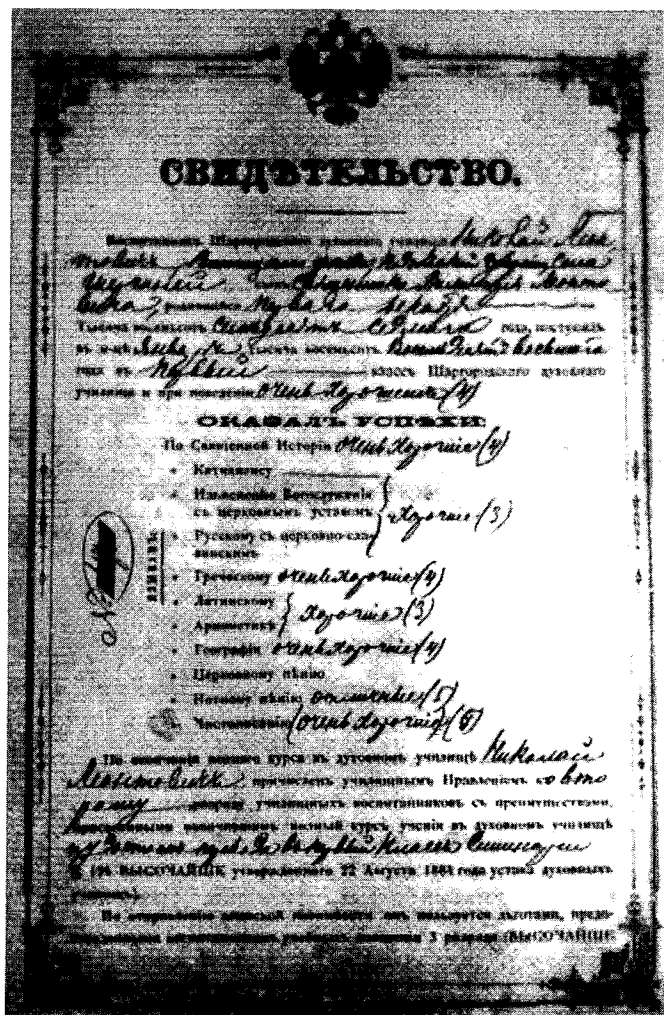 СВИДѢТЕЛЬСТВО.
Воспитанникъ Шаргородскаго духовнаго училища Николай Леон
товичъ
сынъ Священника Леонто
вича, родившійся перваго
тысяча восемьсотъ семьдесятъ седьмого года, поступилъ
въ м-цѣ тысяча восемьсотъ восьмого
года въ первый классъ Шаргородскаго духовнаго
училища и при поведеніи очень хорошемъ (4)
ОКАЗАЛЪ УСПѢХИ:
По Священной Исторіи очень хорошіе (4)
" Катихизису
" Изъясненію Богослуженія
съ церковнымъ уставомъ хорошіе (3)
" Русскому съ церковно-сла-
вянскимъ
ЯЗЫКАМЪ:
" Греческому очень хорошіе (4)
" Латинскому
" Ариѳметикѣ хорошіе (3)
" Географіи очень хорошіе (4)
" Церковному пѣнію
" Нотному пѣнію отличные (5)
" Чистописанію очень хорошіе (5)
№
По окончаніи полнаго курса въ духовномъ училищѣ Николай
Леонтовичъ причисленъ училищнымъ Правленіемъ ко вто
рому разряду училищныхъ воспитанниковъ съ преимуществами,
присвоенными окончившимъ полный курсъ ученія въ духовномъ училищѣ
первый классъ Семинаріи
ВЫСОЧАЙШЕ утвержденнаго 22 Августа 1884 года устава духовныхъ
училищъ).
По отправленію воинской повинности онъ пользуется льготами, предо-
3 разряда (ВЫСОЧАЙШЕ